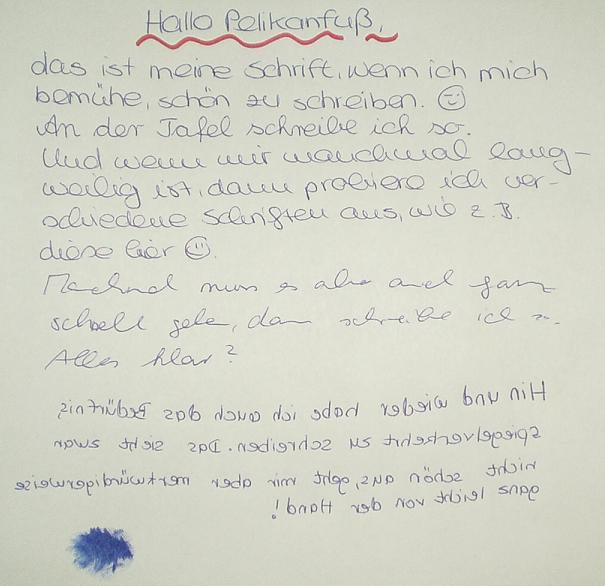 Hallo Pelikanfuß,
das ist meine Schrift, wenn ich mich
bemühe, schön zu schreiben.
An der Tafel schreibe ich so.
Und wenn mir manchmal lang-
weilig ist, dann probiere ich ver-
schiedene Schriften aus, wie z.B.
diese hier
Manchmal muss es aber auch ganz
schnell gehen, dann schreibe ich so.
Alles klar?
Hin und wieder habe ich auch das Bedürfnis
spiegelverkehrt zu schreiben. Das sieht zwar
nicht schön aus, geht mir aber merkwürdigerweise
ganz leicht von der Hand!